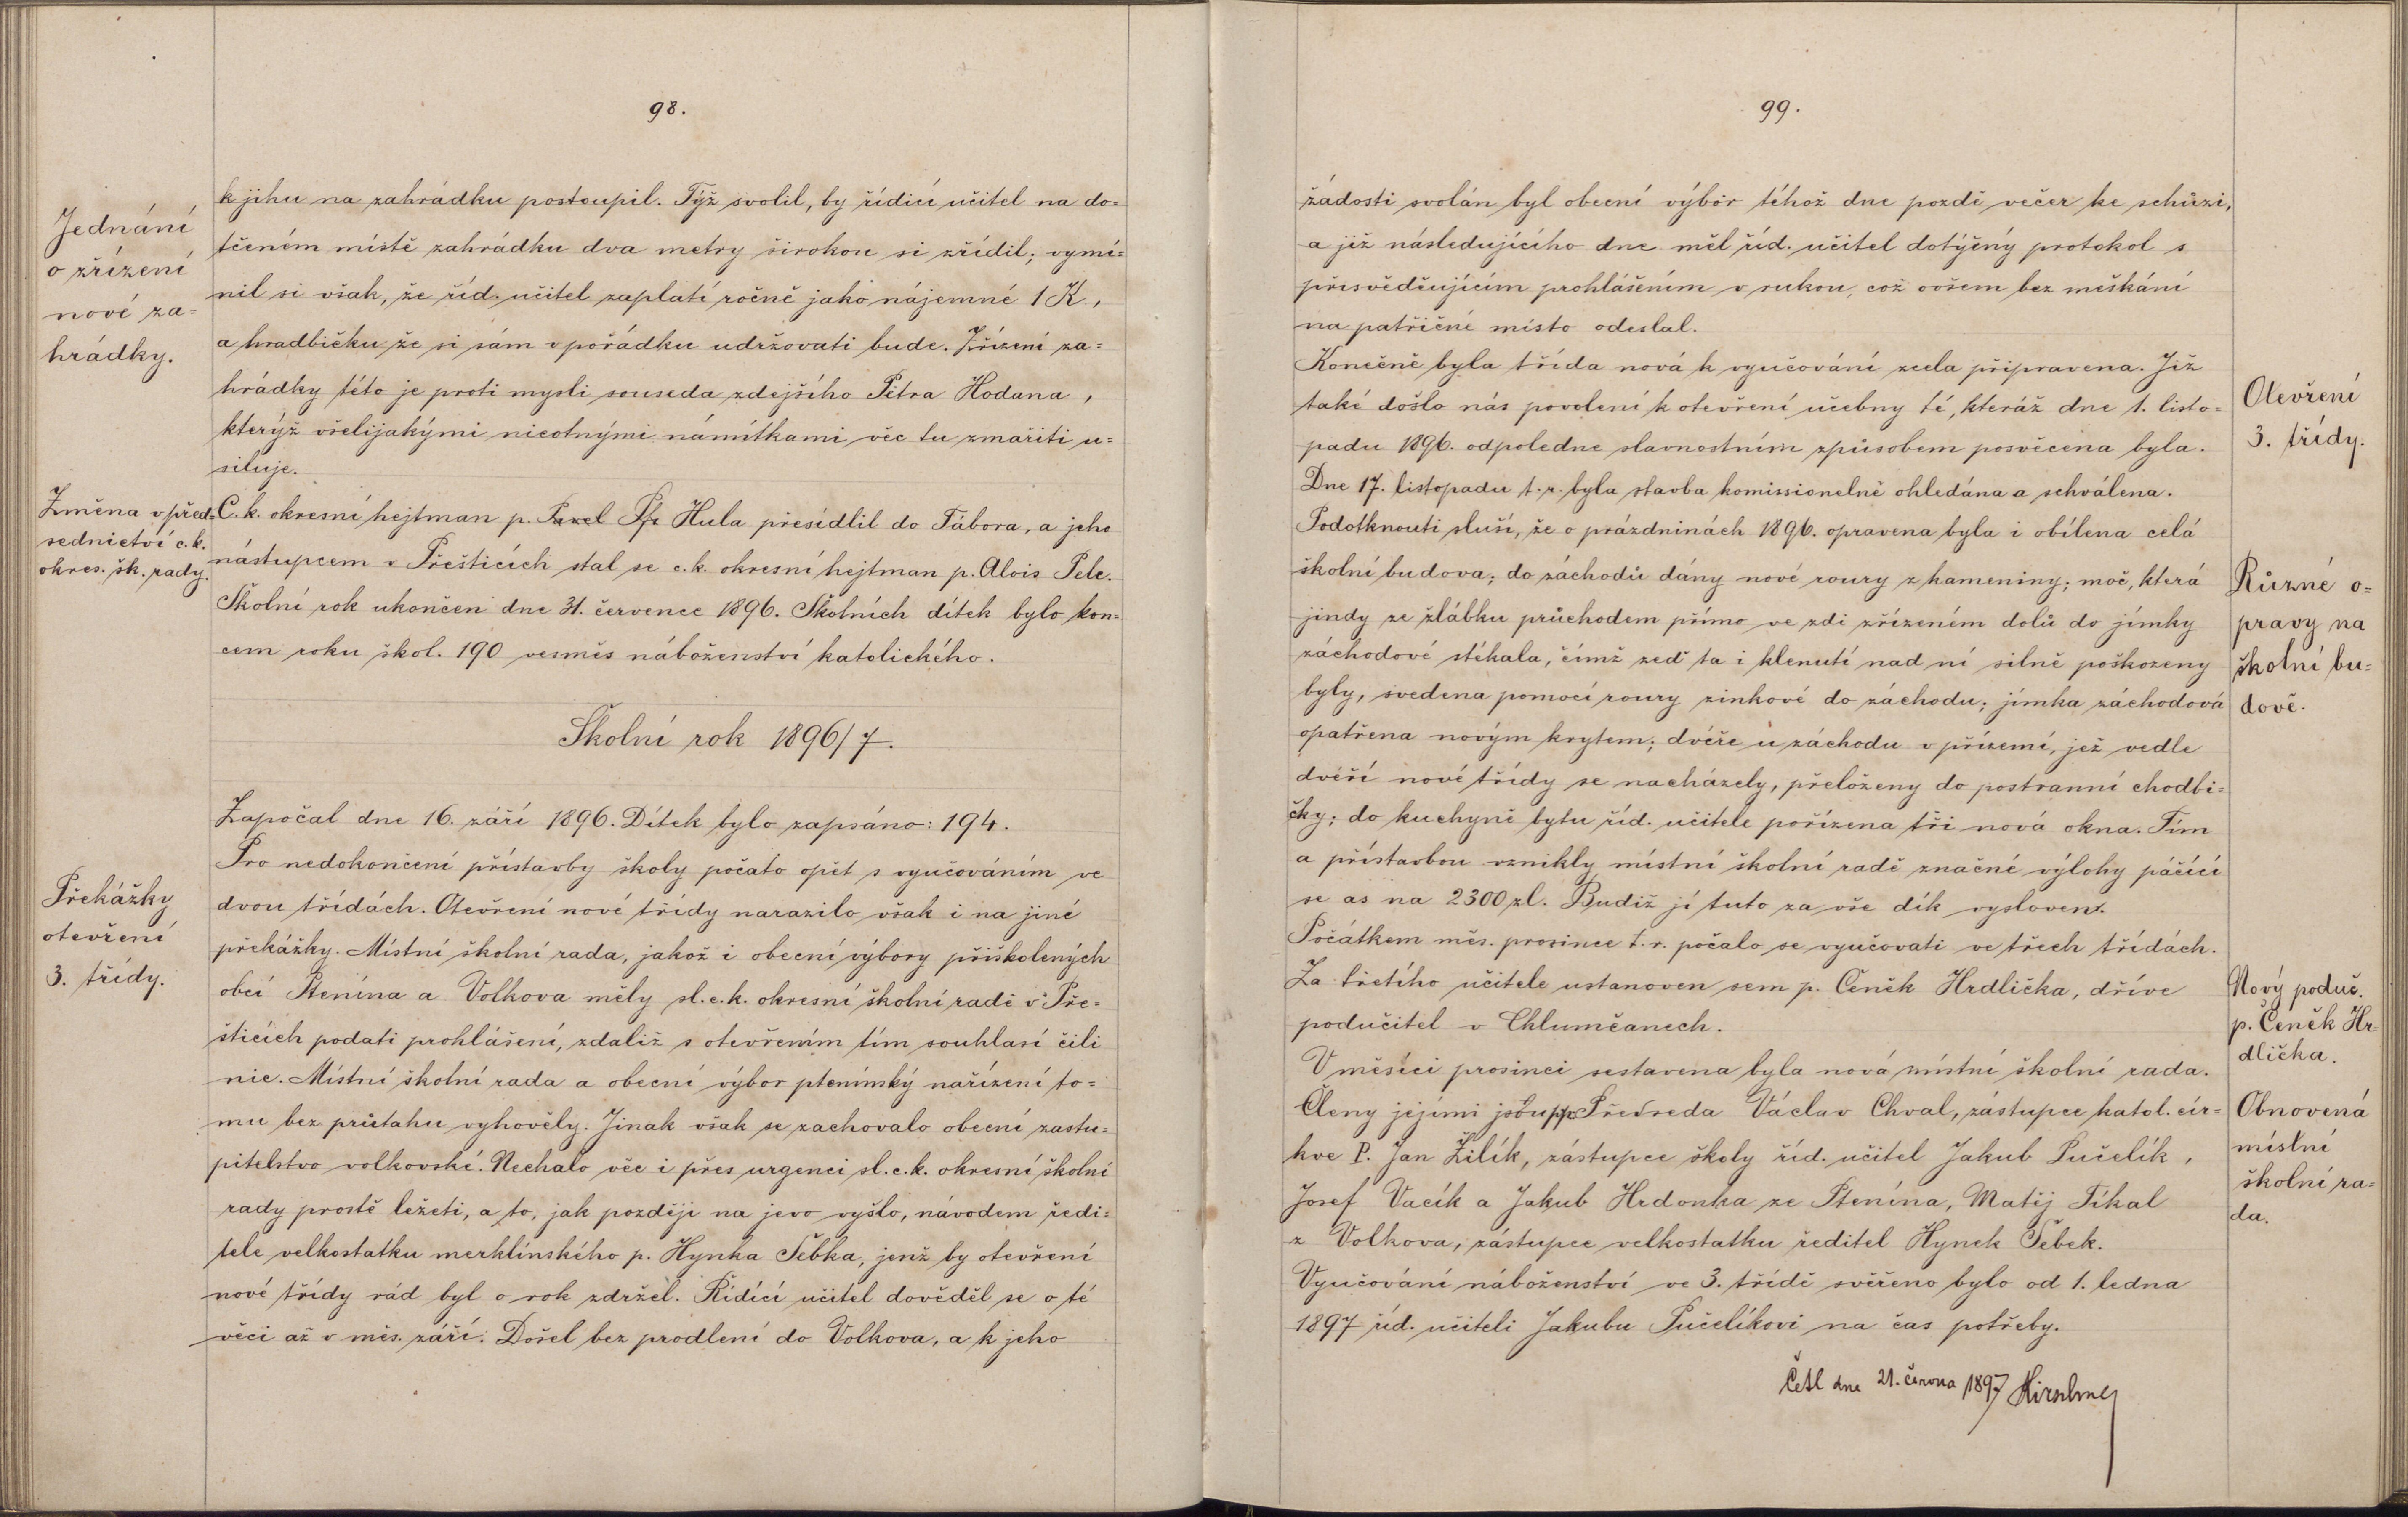 98.
Jednání
o zřízení
nové za=
hrádky.
k jihu na zahrádku postoupil. Týž svolil, by řídící učitel na do=
tčeném místě zahrádku dva metry širokou si zřídil; vymí=
nil si však, že říd. učitel zaplatí ročně jako nájemné 1 K,
a hradbičku že si sám v pořádku udržovati bude. Zřízení za=
hrádky této je proti mysli souseda zdejšího Petra Hodana,
kterýž všelijakými nicotnými námitkami věc tu zmařiti u=
siluje.
Změna v před=
sednictví c.k.
okres. šk. rady.
C. k. okresní hejtman p. Pavel Hula přesídlil do Tábora, a jeho
nástupcem v Přešticích stal se c. k. okresní hejtman p. Alois Pele.
Školní rok ukončen dne 31. července 1896. Školních dítek bylo kon=
cem roku škol. 190 vesměs náboženství katolického.
Školní rok 1896/7.
Započal dne 16. září 1896. Dítek bylo zapsáno: 194.
Pro nedokončení přístavby školy počato opět s vyučováním ve
Překážky
otevření
3. třídy.
dvou třídách. Otevření nové třídy narazilo však i na jiné
překážky. Místní školní rada, jakož i obecní výbory přiškolených
obcí Ptenína a Volkova měly sl. c. k. okresní školní radě v Pře=
šticích podati prohlášení, zdaliž s otevřením tím souhlasí čili
nic. Místní školní rada a obecní výbor ptenínský nařízení to=
mu bez průtahu vyhověly. Jinak však se zachovalo obecní zastu=
pitelstvo volkovské. Nechalo věc i přes urgenci sl. c. k. okresní školní
rady prostě ležeti, a to, jak později na jevo vyšlo, návodem ředi=
tele velkostatku merklínského p. Hynka Šebka, jenž by otevření
nové třídy rád byl o rok zdržel. Řídící učitel dověděl se o té
věci až v měs. září. Došel bez prodlení do Volkova, a k jeho
99.
žádosti svolán byl obecní výbor téhož dne pozdě večer ke schůzi,
a již následujícího dne měl říd. učitel dotýčný protokol s
přisvědčujícím prohlášením v rukou, což ovšem bez meškání
na patřičné místo odeslal.
Konečně byla třída nová k vyučování zcela připravena. Již
také došlo nás povolení k otevření učebny té, kteráž dne 1. listo=
padu 1896. odpoledne slavnostním způsobem posvěcena byla.
Otevření
3. třídy.
Dne 17. listopadu t. r. byla stavba komissionelně ohledána a schválena.
Podotknouti sluší, že o prázdninách 1896. opravena byla i obílena celá
školní budova; do záchodů dány nové roury z kameniny; moč, která
jindy ze žlábku průchodem přímo ve zdi zřízeném dolů do jímky
záchodové stékala, čímž zeď ta i klenutí nad ní silně poškozeny
byly, svedena pomocí roury zinkové do záchodu; jímka záchodová
opatřena novým krytem; dvéře u záchodu v přízemí, jež vedle
dvéří nové třídy se nacházely, přeloženy do postranní chodbi=
čky; do kuchyně bytu říd. učitele pořízena tři nová okna. Tím
a přístavbou vznikly místní školní radě značné výlohy páčící
se as na 2300 zl. Budiž jí tuto za vše dík vysloven.
Různé o=
pravy na
školní bu=
dově.
Počátkem měs. prosince t. r. počalo se vyučovati ve třech třídách.
Za třetího učitele ustanoven sem p. Čeněk Hrdlička, dříve
podučitel v Chlumčanech.
Nový poduč.
p. Čeněk Hr=
dlička.
V měsíci prosinci sestavena byla nová místní školní rada.
Členy jejími jsou pp. Předseda Václav Chval, zástupce katol. cír=
kve P. Jan Žilík, zástupce školy říd. učitel Jakub Pučelík,
Josef Vacík a Jakub Hrdonka ze Ptenína, Matěj Tikal
z Volkova, zástupce velkostatku ředitel Hynek Šebek.
Obnovená
místní
školní ra=
da.
Vyučování náboženství ve 3. třídě svěřeno bylo od 1. ledna
1897 říd. učiteli Jakubu Pučelíkovi na čas potřeby.
Četl dne 21. června 1897